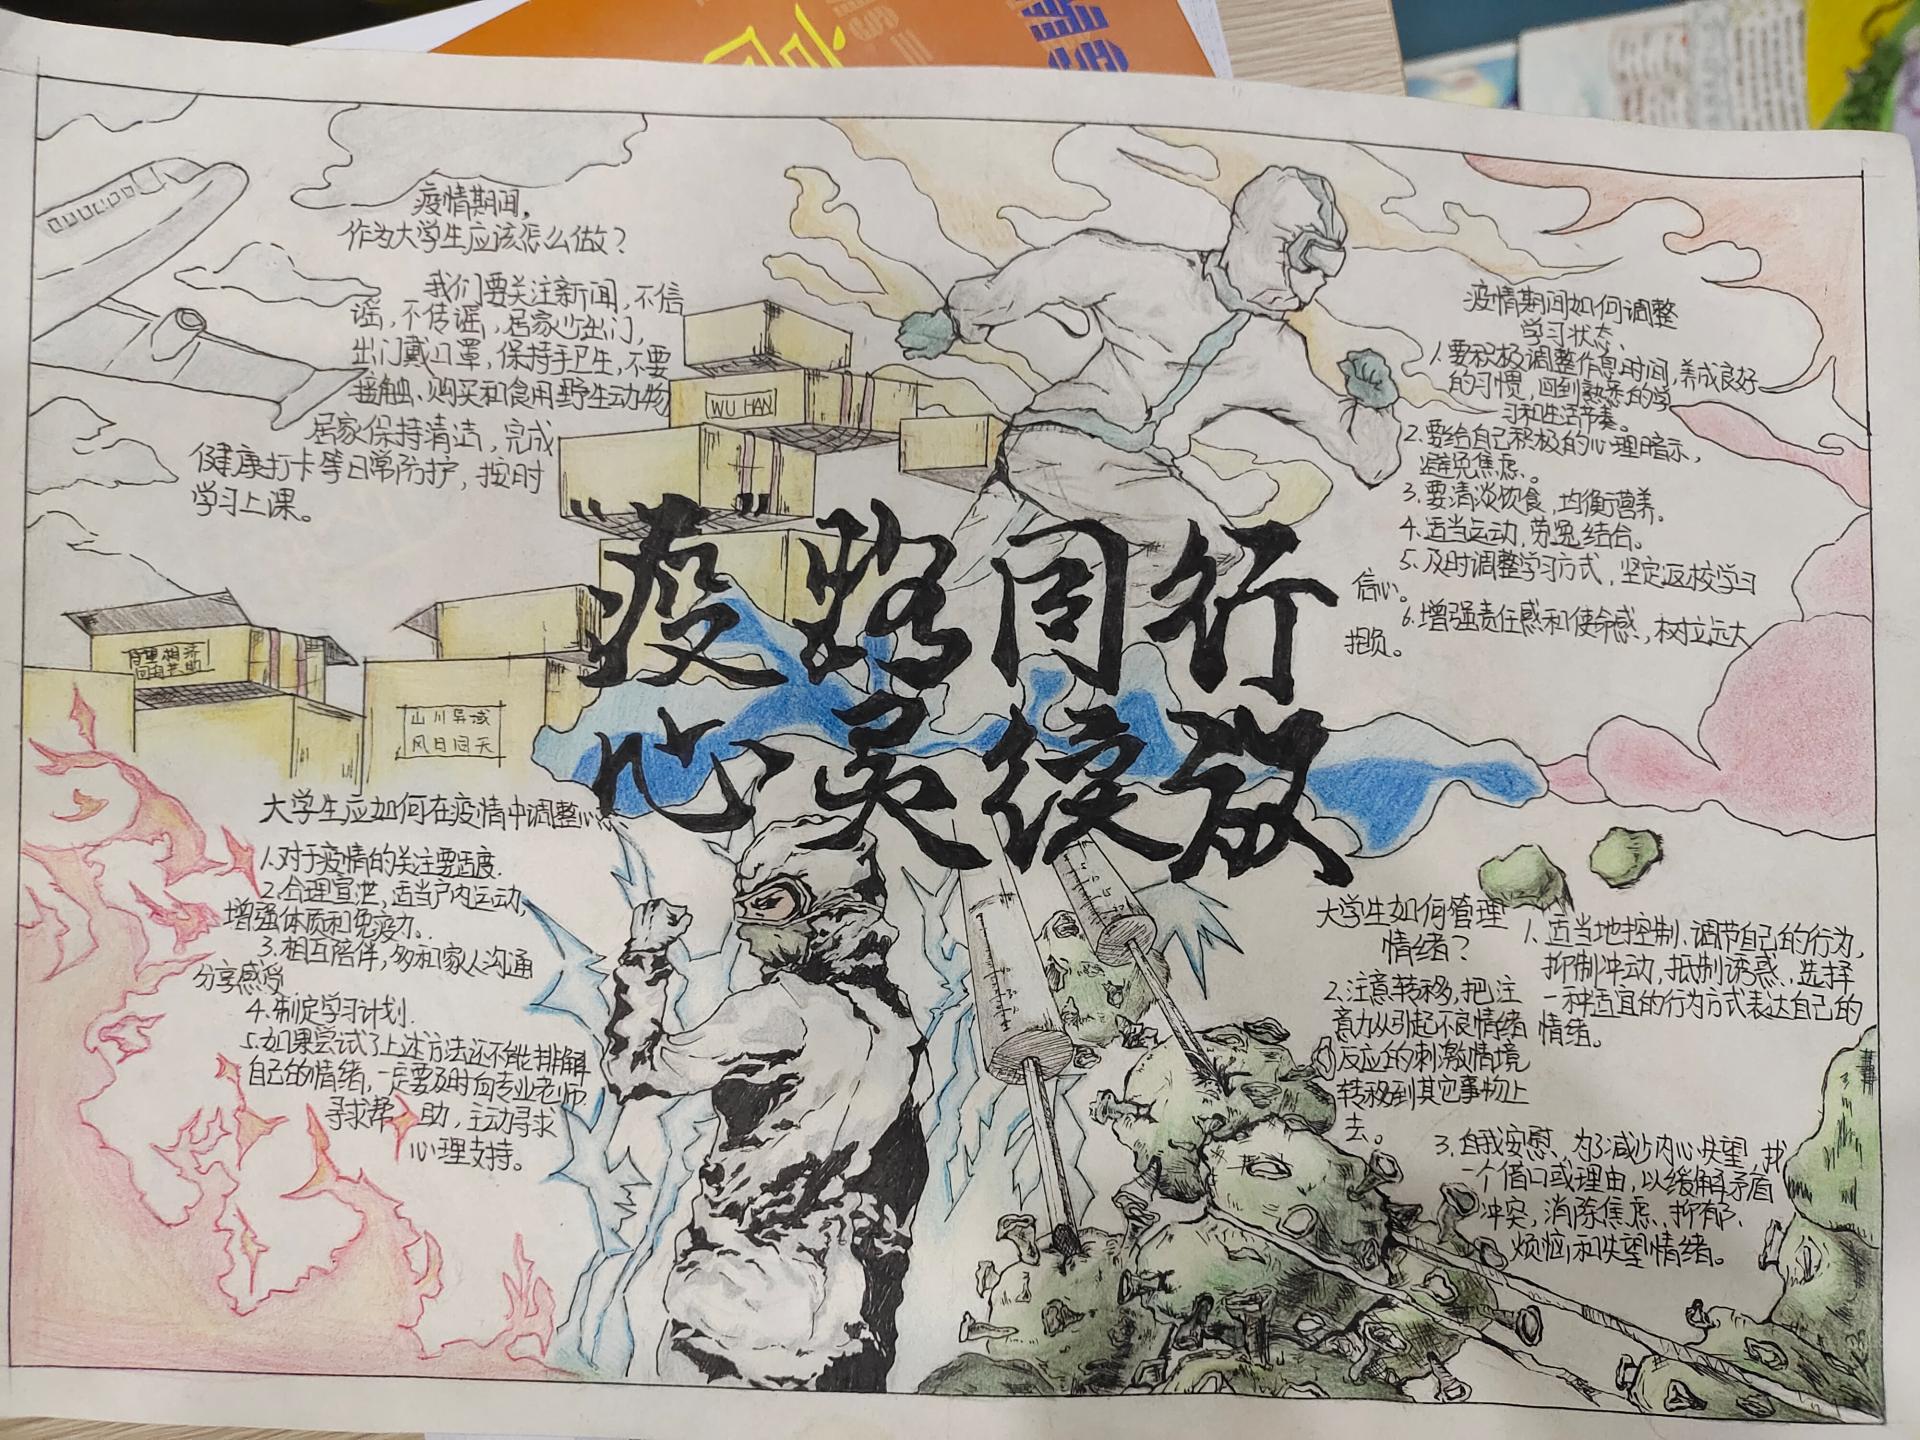 疫情期间，
作为大学生应该怎么做？
我们要关注新闻，不信
谣，不传谣，居家少出门，
出门戴口罩，保持手卫生，不要
接触、购买和食用野生动物
居家保持清洁，完成
健康打卡等日常防护，按时
学习上课。
WU HAN
山川异域
风日同天
疫路同行
心灵绽放
疫情期间如何调整
学习状态
1.要积极调整作息时间，养成良好
的习惯，回到熟悉的学
习和生活节奏。
2.要给自己积极的心理暗示，
避免焦虑。
3.要清淡饮食，均衡营养。
4.适当运动，劳逸结合。
5.及时调整学习方式，坚定返校学习
信心。
6.增强责任感和使命感，树立远大
抱负。
大学生应如何在疫情中调整心态
1.对于疫情的关注要适度.
2.合理宣泄，适当户内运动，
增强体质和免疫力.
3.相互陪伴，多和家人沟通
分享感受
4.制定学习计划.
5.如果尝试了上述方法还不能排解
自己的情绪，一定要及时向专业老师
寻求帮助，主动寻求
心理支持。
大学生如何管理
情绪？
1.适当地控制、调节自己的行为，
抑制冲动，抵制诱惑、选择
一种适宜的行为方式表达自己的
情绪。
2.注意转移，把注
意力从引起不良情绪
反应的刺激情境
转移到其它事物上
去。
3.自我安慰，为了减少内心失望 找
一个借口或理由，以缓解矛盾
冲突，消除焦虑、抑郁、
烦恼和失望情绪。